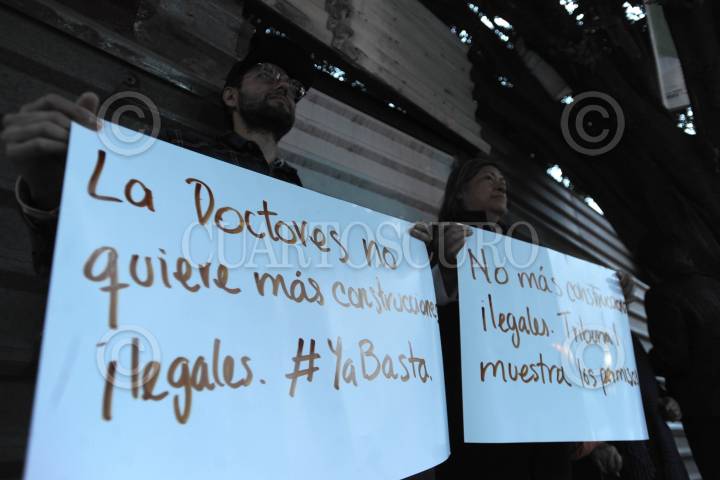 La Doctores no
quiere más construcciones
ilegales. #YaBasta.
No más construcciones
ilegales. Tribunal
muestra los
CUARTOSCURO